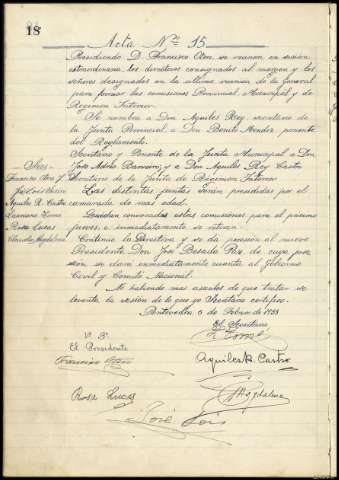 18
Acta Nº 15
Presidiendo D. Francisco Otero, se reunen en sesión
extraordinaria los directivos consignados al margen y los
señores designados en la ultima reunión de la General
para formar las comisiones Provincial, Municipal y de
Regimen Interior.
Se nombra a Don Aquiles Rey secretario de
la Junta Provincial a Don Benito Mendez ponente
del Reglamento.
Secretario y Ponente de la Junta Municipal a Don
José Adrio Barreiro y a Don Aquilles Rey Castro
Secretario de la Junta de Regimen Interior
Sres:
Francisco Otero
José Lois
Aquiles R. Castro
Rosa Lucas
Claudio Magdalena
Las distintas juntas serán presididas por el
camarada de mas edad.
Quedan convocadas estas comisiones para el próximo
jueves, e inmediatamente se retiran.
Continua la Directiva y se da posesión al nuevo
Presidente Don José Besada Paz de cuya pose
sión se dará inmediatamente cuenta al Gobierno
Civil y Comité Nacional.
Y no habiendo mas asuntos de que tratar se
levanta la sesión de lo que yo Secretario certifico.
Pontevedra 6 de Febrero de 1933
El Secretario
Vº Bº
El Presidente
Francisco Otero
Aquiles R. Castro
Rosa Lucas
Magdalena
José Lois